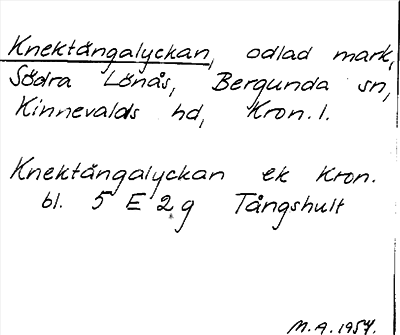 Knektängalyckan, odlad mark,
Södra Lönås, Bergunda sn,
Kinnevalds hd, Kron. l.
Knektängalyckan ek Kron.
bl. 5 E 2 g Tångshult
M.A. 1954.